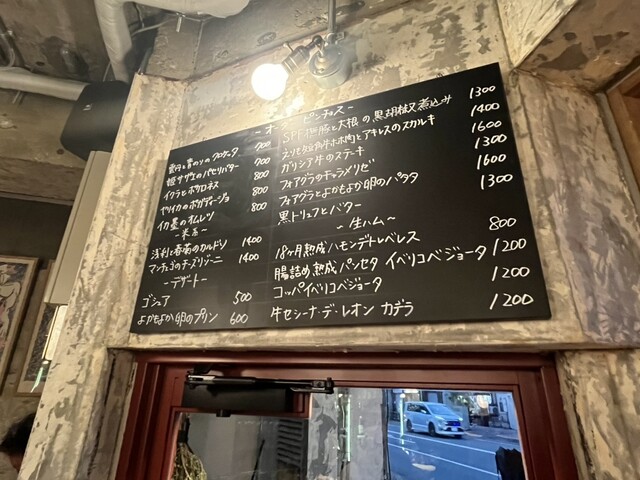 ーオーダーピンチョスー
雲丹と青のりのクロケッタ 700
姫サザエのパセリバター 700
イクラとボカロネス 800
ヤリイカのボガディージョ 800
イカ墨のオムレツ 800
〜米系〜
浅利と春菊のカルドソ 1400
マンチェゴのチーズリゾーニ 1400
ーデザートー
ゴシュア 500
よかもよか卵のプリン 600
SPF豚と大根の黒胡椒煮込み 1300
牛ホホ肉とアキレスのスカルキ 1400
ガリシア牛のステーキ 1600
フォアグラのキャラメリゼ 1300
フォアグラとよかもよか卵のパタタ 1600
黒トリュフとバター 1300
〜生ハム〜
18ヶ月熟成ハモンデトレベレス 800
腸詰め熟成パンセタ イベリコベジョータ 1200
コッパイベリコベジョータ 1200
牛セシーナ・デ・レオン カデラ 1200